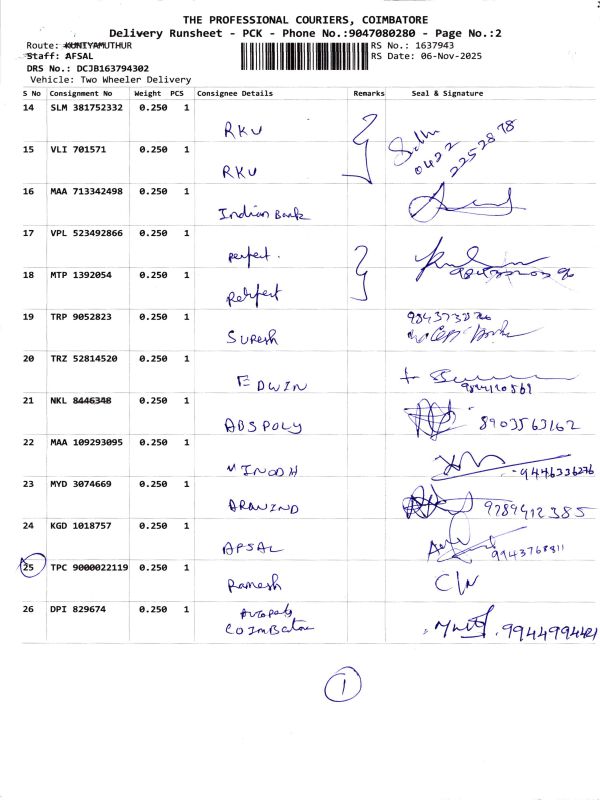 THE PROFESSIONAL COURIERS, COIMBATORE
Delivery Runsheet - PCK - Phone No.:9047080280 - Page No.:2
Route: KUNIYAMUTHUR RS No.: 1637943
Staff: AFSAL RS Date: 06-Nov-2025
DRS No.: DCJB163794302
Vehicle: Two Wheeler Delivery
S No Consignment No Weight PCS Consignee Details Remarks Seal & Signature
14 SLM 381752332 0.250 1
RKV
0422
2252878
15 VLI 701571 0.250 1
RKV
16 MAA 713342498 0.250 1
Indian Bank
17 VPL 523492866 0.250 1
perfect.
18 MTP 1392054 0.250 1
19 TRP 9052823 0.250 1
Suresh
20 TRZ 52814520 0.250 1
EDWIN
21 NKL 8446348 0.250 1
ABSPOLY 8903563162
22 MAA 109293095 0.250 1
VINODH 9446336276
23 MYD 3074669 0.250 1
ARAVIND 9789412385
24 KGD 1018757 0.250 1
AFSAL 9943768811
25 TPC 9000022119 0.250 1
Ramesh C/N
26 DPI 829674 0.250 1
COIMBatore 9944994421
1